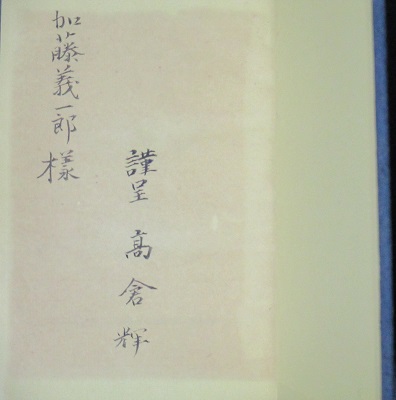 謹呈 高倉輝
加藤義一郎樣